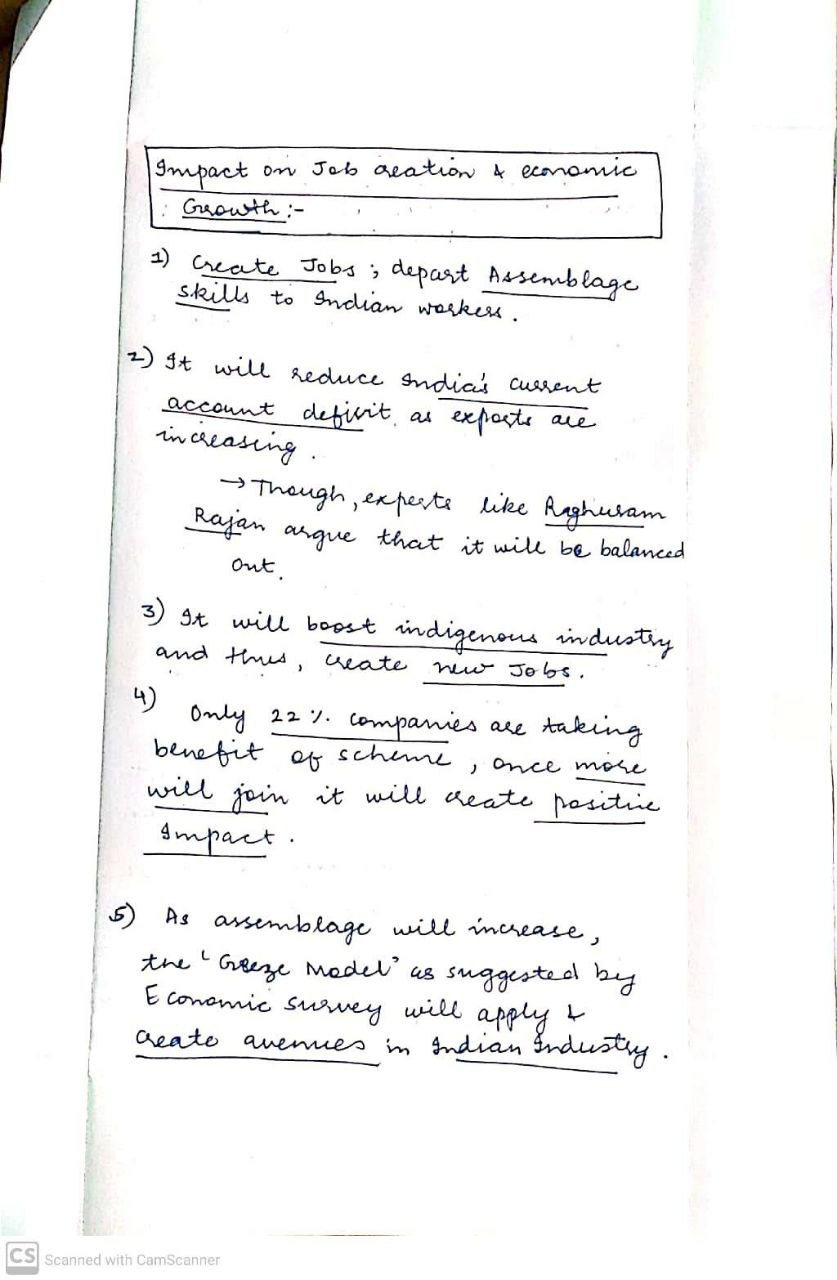 Impact on Job creation & economic
Growth :-
1) Create Jobs ; depart Assemblage
skills to Indian workers.
2) It will reduce India's current
account deficit, as exports are
increasing.
→ Though, experts like Raghuram
Rajan argue that it will be balanced
out.
3) It will boost indigenous industry
and thus, create new Jobs.
4)
Only 22 %. companies are taking
benefit of scheme, once more
will join it will create positive
Impact.
5) As assemblage will increase,
the 'Greeze Model' as suggested by
Economic survey will apply &
create avenues in Indian Industry.
CS Scanned with CamScanner